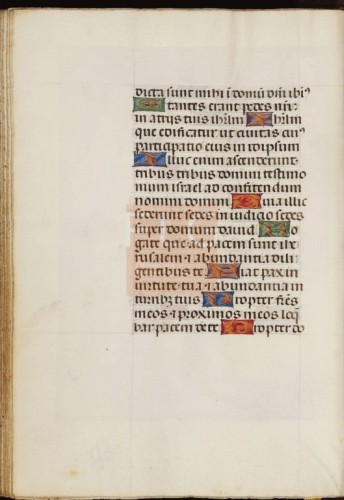 dicta sunt mihi ī domū dnī ibiꝰ
S tantes erant pedes nr̄i
in atrijs tuis ihrl̄m I hrl̄m
que edificatur ut ciuitas cuiꝰ
participatio eius in idipsum
I lluc enim ascenderunt
tribus tribus domini testimo
nium israel ad confitendum
nomini domini Q uia illic
sederunt sedes in iudicio sedes
super domum dauid R o
gate que ad pacem sunt ihe
rusalem ⁊ abundantia dili
gentibus te F iat pax in
uirtute tua ⁊ abundantia in
turribꝰ tuis P ropter fr̄es
meos ⁊ proximos meos loq̄
bar pacem de te P ropter do